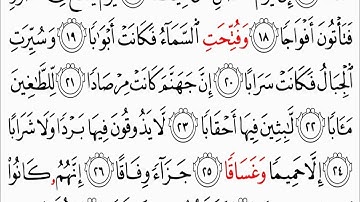 فَتَأْتُونَ أَفْوَاجًا ١٨ وَفُتِّحَتِ السَّمَآءُ فَكَانَتْ أَبْوَٰبًا ١٩ وَسُيِّرَتِ
الْجِبَالُ فَكَانَتْ سَرَابًا ٢٠ إِنَّ جَهَنَّمَ كَانَتْ مِرْصَادًا ٢١ لِّلطَّٰغِينَ
مَـَٔابًا ٢٢ لَّٰبِثِينَ فِيهَآ أَحْقَابًا ٢٣ لَّا يَذُوقُونَ فِيهَا بَرْدًا وَلَا شَرَابًا
٢٤ إِلَّا حَمِيمًا وَغَسَاقًا ٢٥ جَزَآءً وِفَاقًا ٢٦ إِنَّهُمْ كَانُوا۟